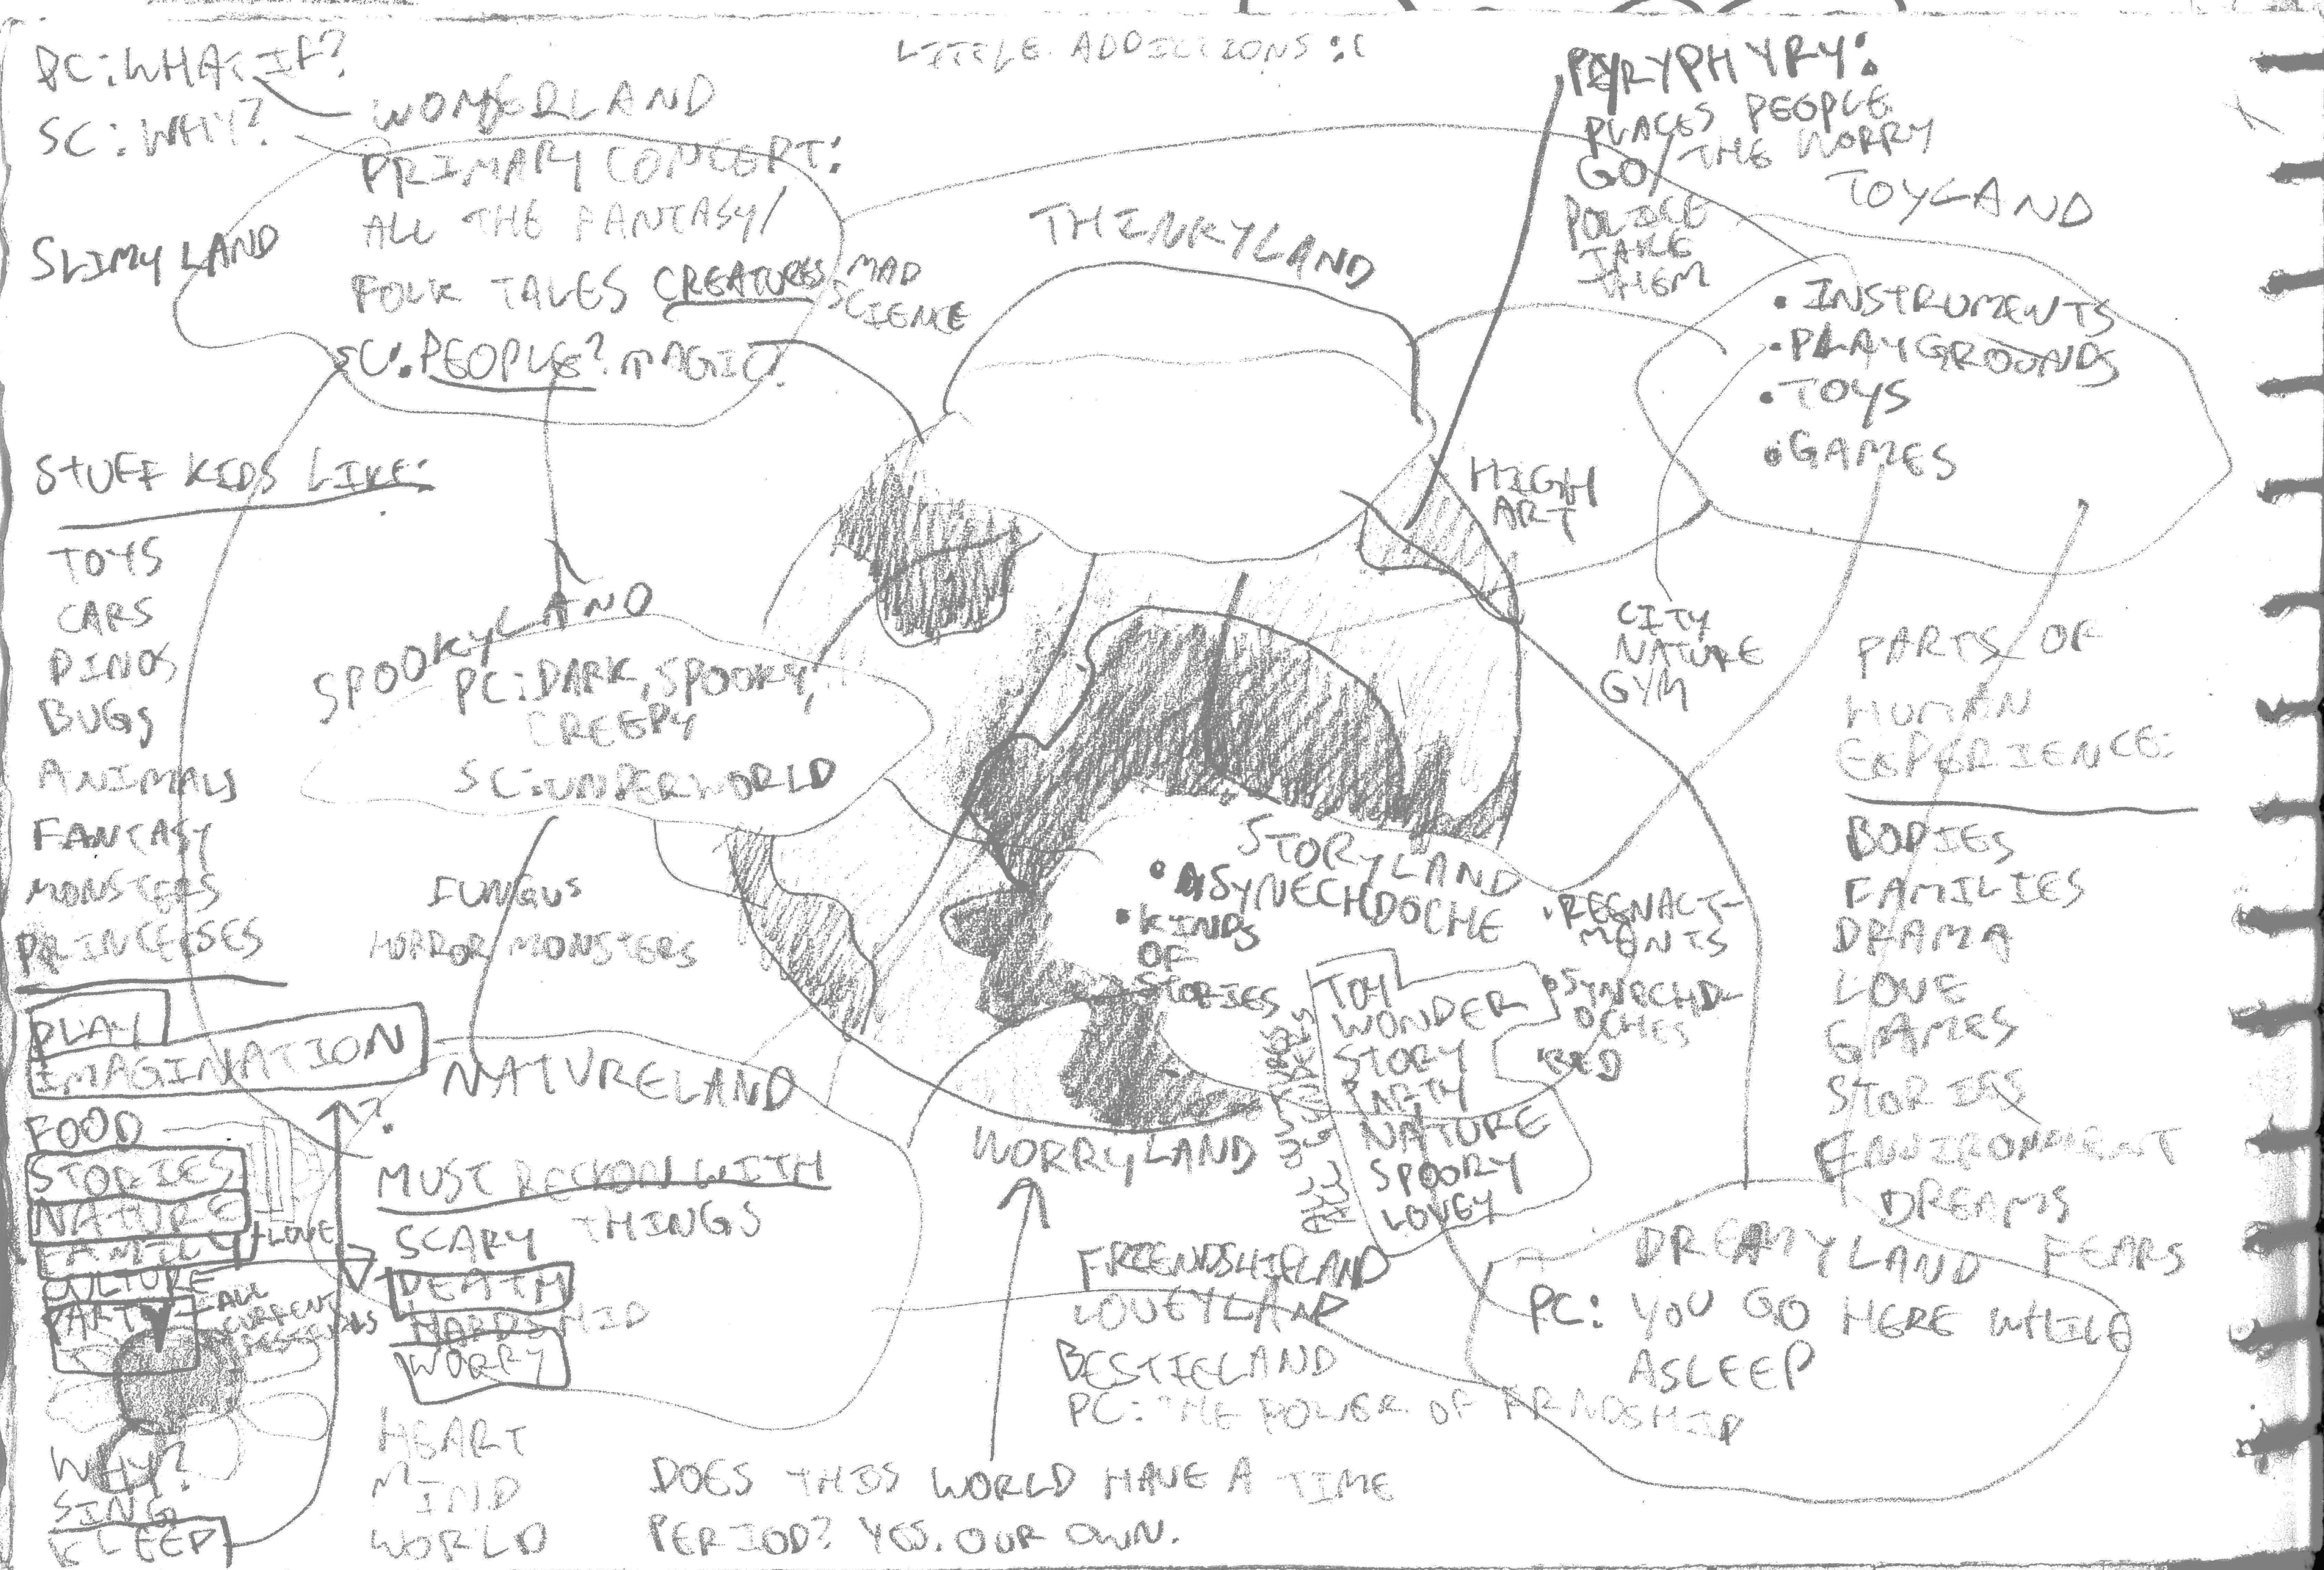 PC: WHAT IF?
SC: WHY?
WONDERLAND
PRIMARY CONCEPT:
ALL THE FANTASY/
FOLK TALES CREATURES, MAD
SCIENCE
SC: PEOPLE? MAGIC?
SLIMYLAND
LITTLE ADDICTIONS :(
THINKYLAND
PYRYPHYRY:
PLACES PEOPLE
GO/ THE WORRY
POLICE
TAKE
THEM
TOYLAND
• INSTRUMENTS
• PLAYGROUNDS
• TOYS
• GAMES
HIGH
ART
CITY
NATURE
GYM
STUFF KIDS LIKE:
TOYS
CARS
DINOS
BUGS
ANIMALS
FANTASY
MONSTERS
PRINCESSES
PLAY
IMAGINATION
FOOD
STORIES
NATURE
FAMILY + LOVE
CULTURE
PARTY
ALL
CURRENT
WHY?
SING
SLEEP
SPOOKYLAND
PC: DARK, SPOOKY,
CREEPY
SC: UNDERWORLD
FUNGUS
HORROR MONSTERS
NATURELAND
?
MUST RECKON WITH
SCARY THINGS
DEATH
HARDSHIP
WORRY
HEART
MIND
WORLD
STORYLAND
• SYNECHDOCHE
• KINDS
OF
STORIES
• REENACT-
MENTS
• SYNECHD-
OCHES
TOY
WONDER
STORY
PARTY
NATURE
SPOOKY
LOVEY
WORRYLAND
FRIENDSHIPLAND
LOVEYLAND
BESTIELAND
PC: THE POWER OF FRNDSHIP
DOES THIS WORLD HAVE A TIME
PERIOD? YES. OUR OWN.
PARTS OF
HUMAN
EXPERIENCE:
BODIES
FAMILIES
DRAMA
LOVE
GAMES
STORIES
ENVIRONMENT
DREAMS
FEARS
DREAMYLAND
PC: YOU GO HERE WHILE
ASLEEP